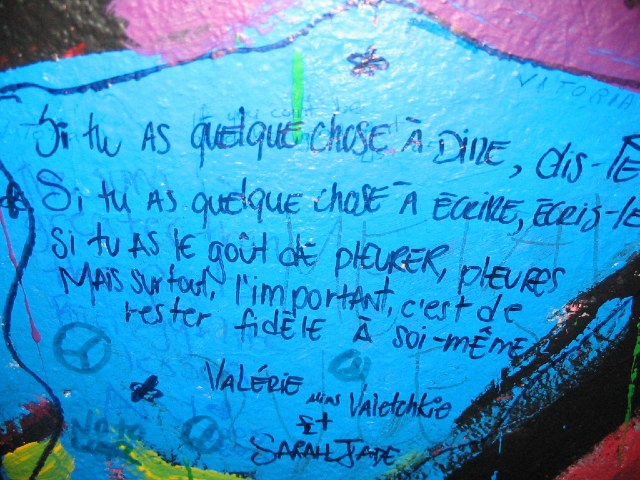 VATORIA
Si tu as quelque chose à dire, dis-le
Si tu as quelque chose à écrire, écris-le
Si tu as le goût de pleurer, pleures
Mais surtout, l'important, c'est de
rester fidèle à soi-même
Valérie alias Valetchkie
et
Sarah Jade